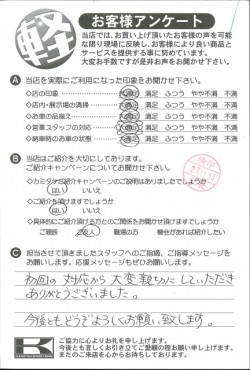 軽
お客様アンケート
当店では、お買い上げ頂いたお客様の声を可能
な限り現場に反映し、お客様により良い商品と
サービスを提供する事に努めています。
大変お手数ですが是非お声をお聞かせ下さい。
A 当店を実際にご利用になった印象をお聞かせ下さい。
◇店の印象 満足 ふつう やや不満 不満
◇店内・展示場の清掃 満足 ふつう やや不満 不満
◇お車の品揃え 満足 ふつう やや不満 不満
◇営業スタッフの対応 満足 ふつう やや不満 不満
◇納車時のお車の状態 満足 ふつう やや不満 不満
B 当店はご紹介を大切にしております。
ご紹介キャンペーンについてお聞かせ下さい。
◇カミタケご紹介キャンペーンのご説明はありましたでしょうか
はい いいえ
◇ご紹介を頂けますでしょうか
はい いいえ
◇具体的にご紹介頂ける方とのご関係をお聞かせ頂けますでしょうか
ご親戚 ご友人 職場の方 機会があれば紹介したい
C 担当させて頂きましたスタッフへのご指摘、ご指導メッセージを
お願いします。応援メッセージもぜひお願いします。
初回の対応から大変親切にしていただき
ありがとうございました。
今後ともどうぞよろしくお願い致します。
K
ご協力に心よりお礼を申し上げます。
今後とも宜しくお引き立てご愛顧の程お願い申し上げます。
またのご来店を心からお待ちしております。